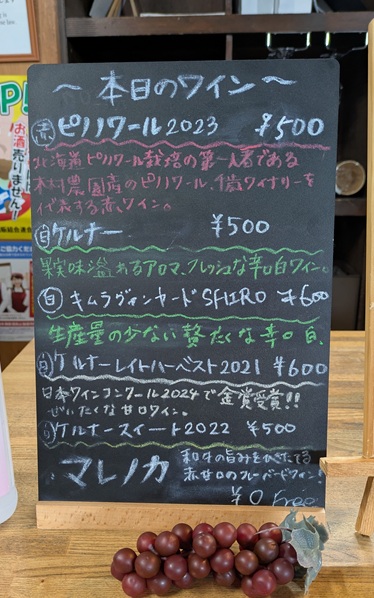 ～ 本日のワイン ～
赤 ピノノワール2023 ¥500
北海道ピノノワール栽培の第一人者である
木村農園産のピノノワール、千歳ワイナリーを
代表する赤ワイン。
白 ケルナー ¥500
果実味溢あるアロマ、フレッシュな辛口白ワイン。
白 キムラヴィンヤード SHIRO ¥600
生産量の少ない贅たくな辛口白、
白 ケルナーレイトハーベスト2021 ¥600
日本ワインコンクール2024で金賞受賞!!
ぜいたくな甘口ワイン。
ケルナースイート2022 ¥500
マレノカ 和牛の旨みをひきたてる
赤甘口のフレーバードワイン!
¥0 Free
お酒売りません!